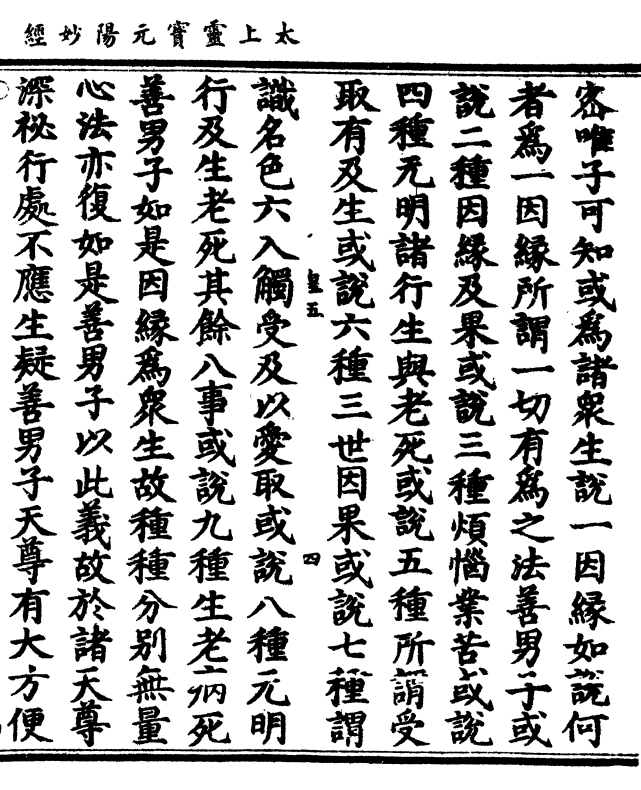 太上靈寶元陽妙經
密唯子可知或爲諸衆生說一因縁如說何
者爲一因縁所謂一切有爲之法善男子或
說二種因縁及果或說三種煩惱業苦或說
四種无明諸行生與老死或說五種所謂受
取有及生或說六種三世因果或說七種謂
皇五
四
識名色六入觸受及以愛取或說八種无明
行及生老死其餘八事或說九種生老病死
善男子如是因縁爲衆生故種種分别無量
心法亦復如是善男子以此義故於諸天尊
深祕行處不應生疑善男子天尊有大方便